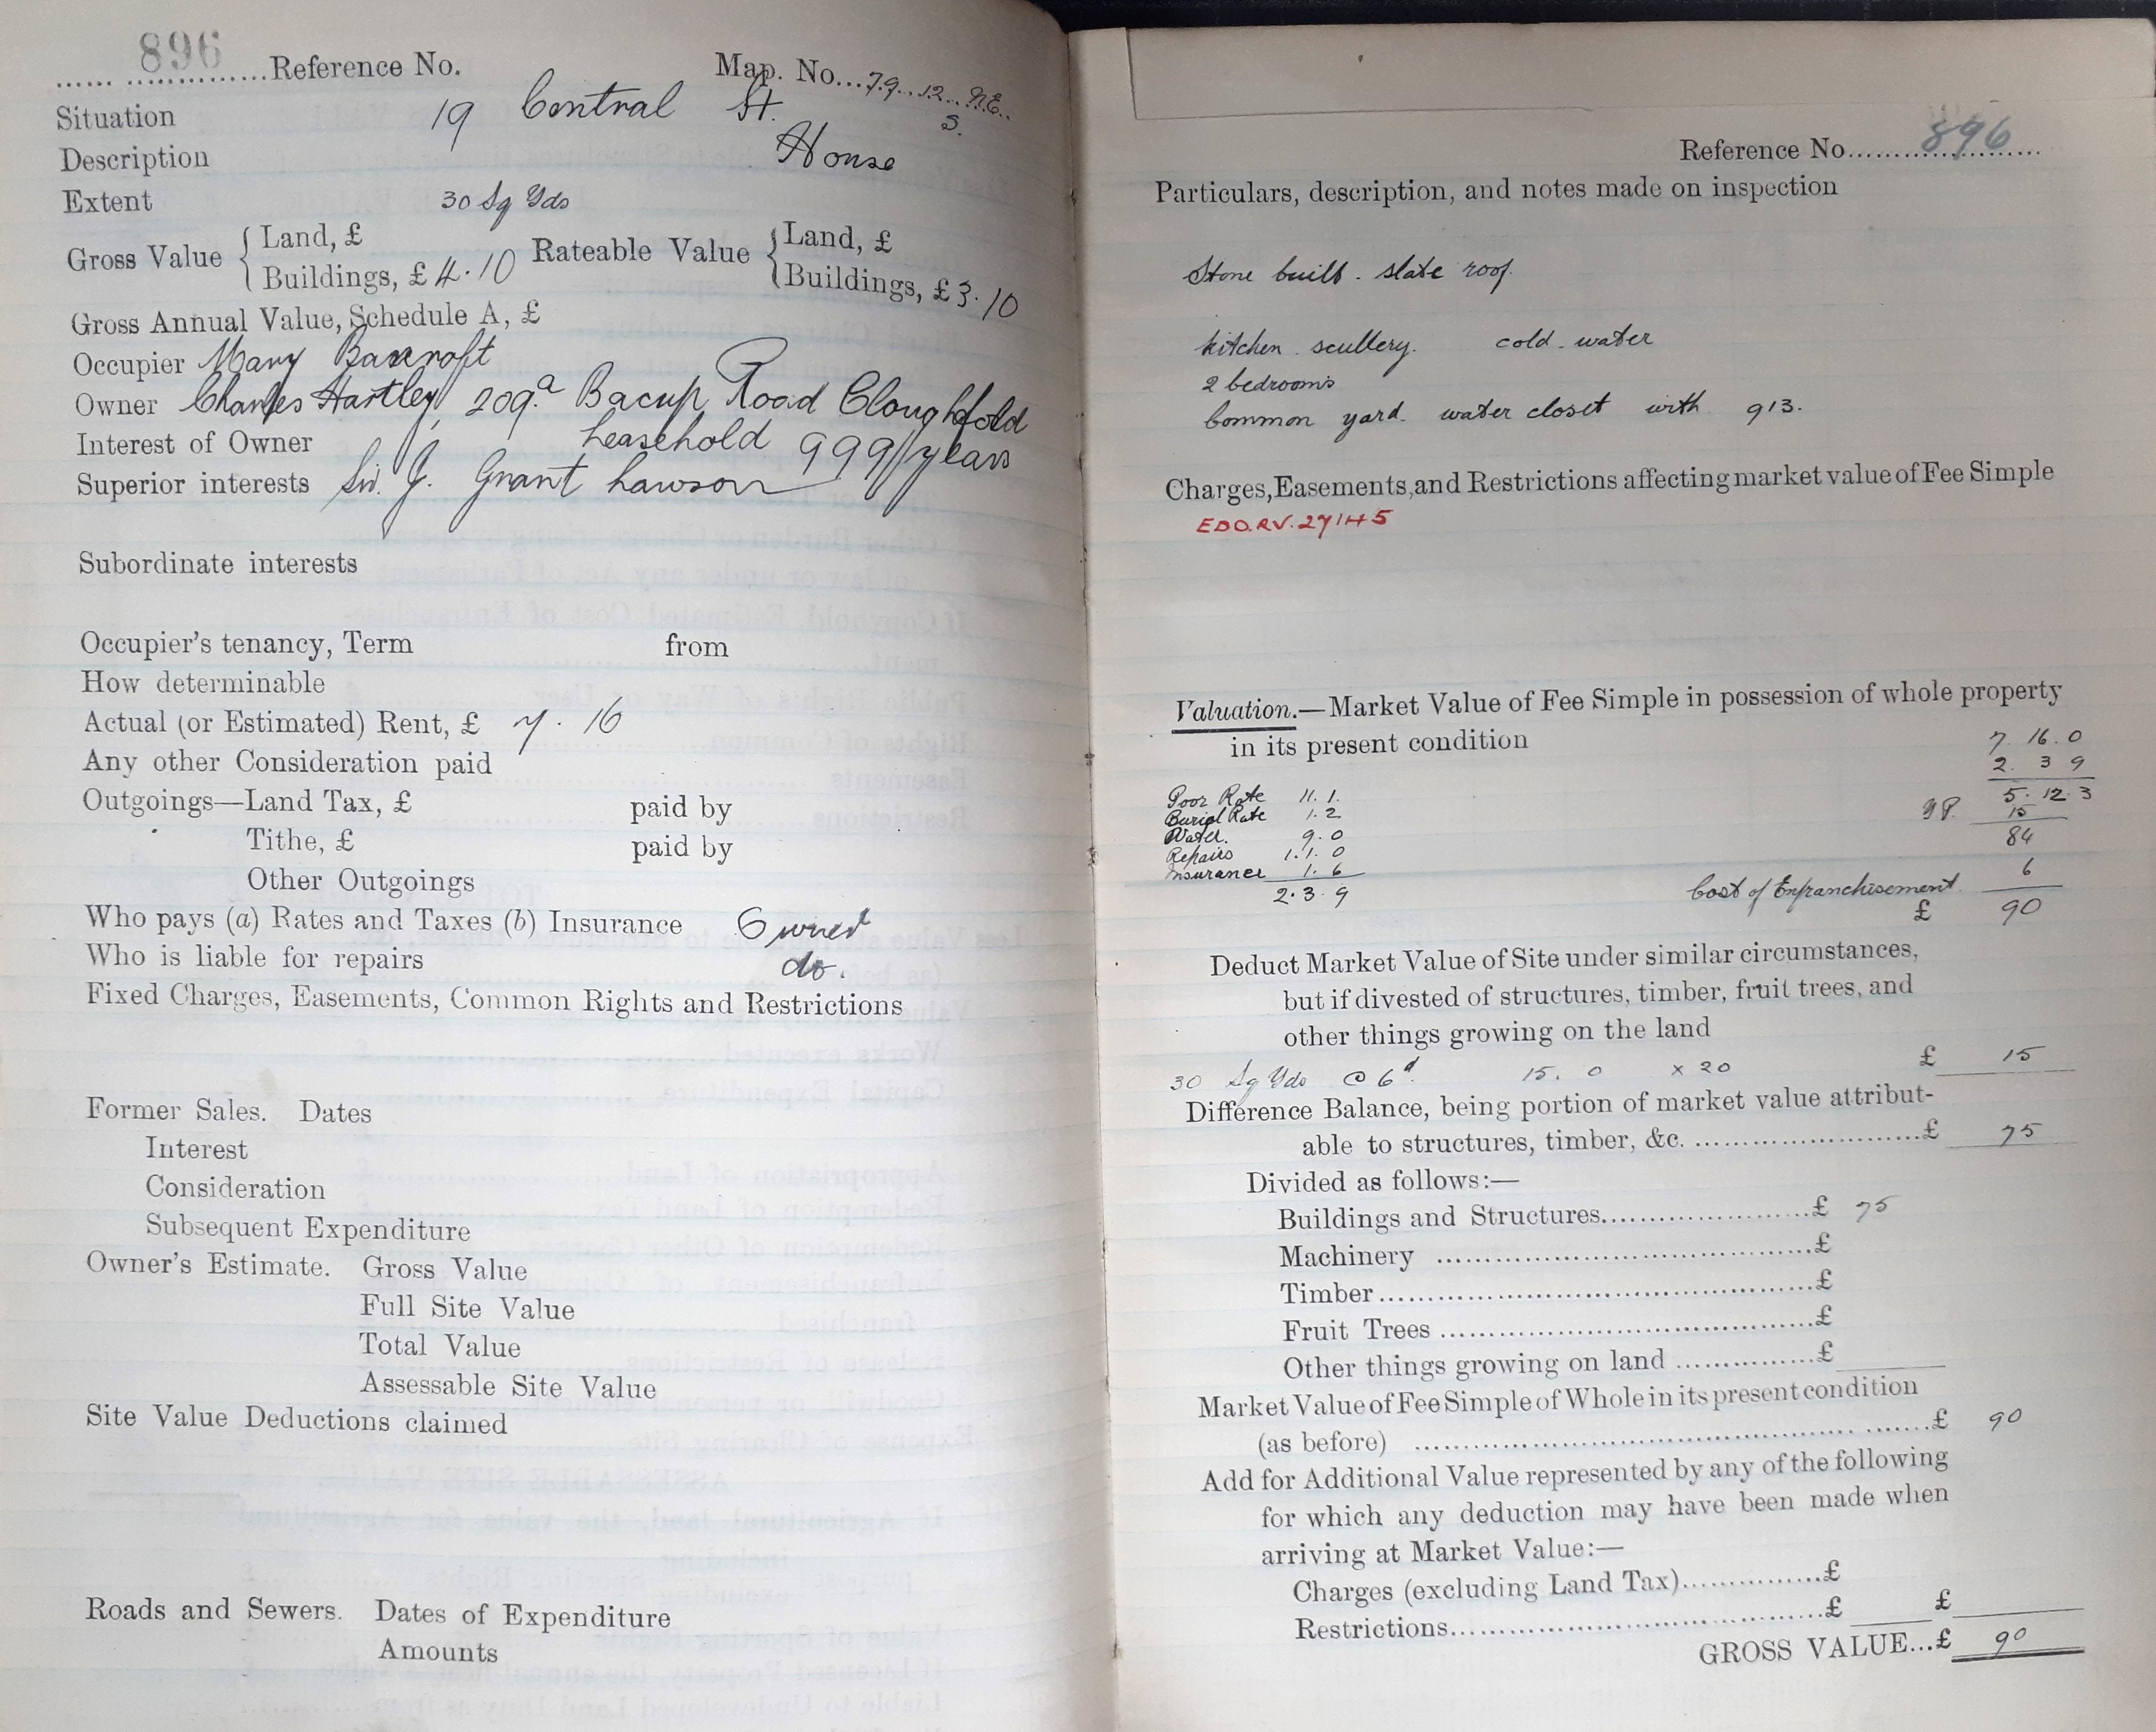 896
...... ..............Reference No. Map. No...79..12..N.E..
S.
Situation 19 Central St.
Description House
Extent 30 Sq Yds
Gross Value { Land, £ Rateable Value { Land, £
Buildings, £ 4.10 Buildings, £ 3.10
Gross Annual Value, Schedule A, £
Occupier Mary Bancroft
Owner Charles Hartley, 209a Bacup Road Cloughfold
Interest of Owner Leasehold 999 years
Superior interests Sir. J. Grant Lawson
Subordinate interests
Occupier's tenancy, Term from
How determinable
Actual (or Estimated) Rent, £ 7. 16
Any other Consideration paid
Outgoings—Land Tax, £ paid by
Tithe, £ paid by
Other Outgoings
Who pays (a) Rates and Taxes (b) Insurance Owner
Who is liable for repairs do.
Fixed Charges, Easements, Common Rights and Restrictions
Former Sales. Dates
Interest
Consideration
Subsequent Expenditure
Owner's Estimate. Gross Value
Full Site Value
Total Value
Assessable Site Value
Site Value Deductions claimed
Roads and Sewers. Dates of Expenditure
Amounts
Reference No......896......
Particulars, description, and notes made on inspection
Stone built. slate roof.
kitchen. scullery. cold. water
2 bedrooms
Common yard. water closet with 913.
Charges, Easements, and Restrictions affecting market value of Fee Simple
EDO.RV.27145
Valuation.—Market Value of Fee Simple in possession of whole property
in its present condition
7. 16. 0
2. 3 9
5. 12. 3
YP. 15
84
Poor Rate 11. 1.
Burial Rate 1. 2
Water. 9. 0
Repairs 1. 1. 0
Insurance 1. 6
2. 3. 9
6
Cost of Enfranchisement.
£ 90
Deduct Market Value of Site under similar circumstances,
but if divested of structures, timber, fruit trees, and
other things growing on the land
30 Sq Yds @ 6d. 15. 0 x 20 £ 15
Difference Balance, being portion of market value attribut-
able to structures, timber, &c. ........................£ 75
Divided as follows:—
Buildings and Structures........................£ 75
Machinery ........................£
Timber........................£
Fruit Trees ........................£
Other things growing on land ................£
Market Value of Fee Simple of Whole in its present condition
(as before) ........................£ 90
Add for Additional Value represented by any of the following
for which any deduction may have been made when
arriving at Market Value:—
Charges (excluding Land Tax)................£
Restrictions........................£ £
GROSS VALUE...£ 90